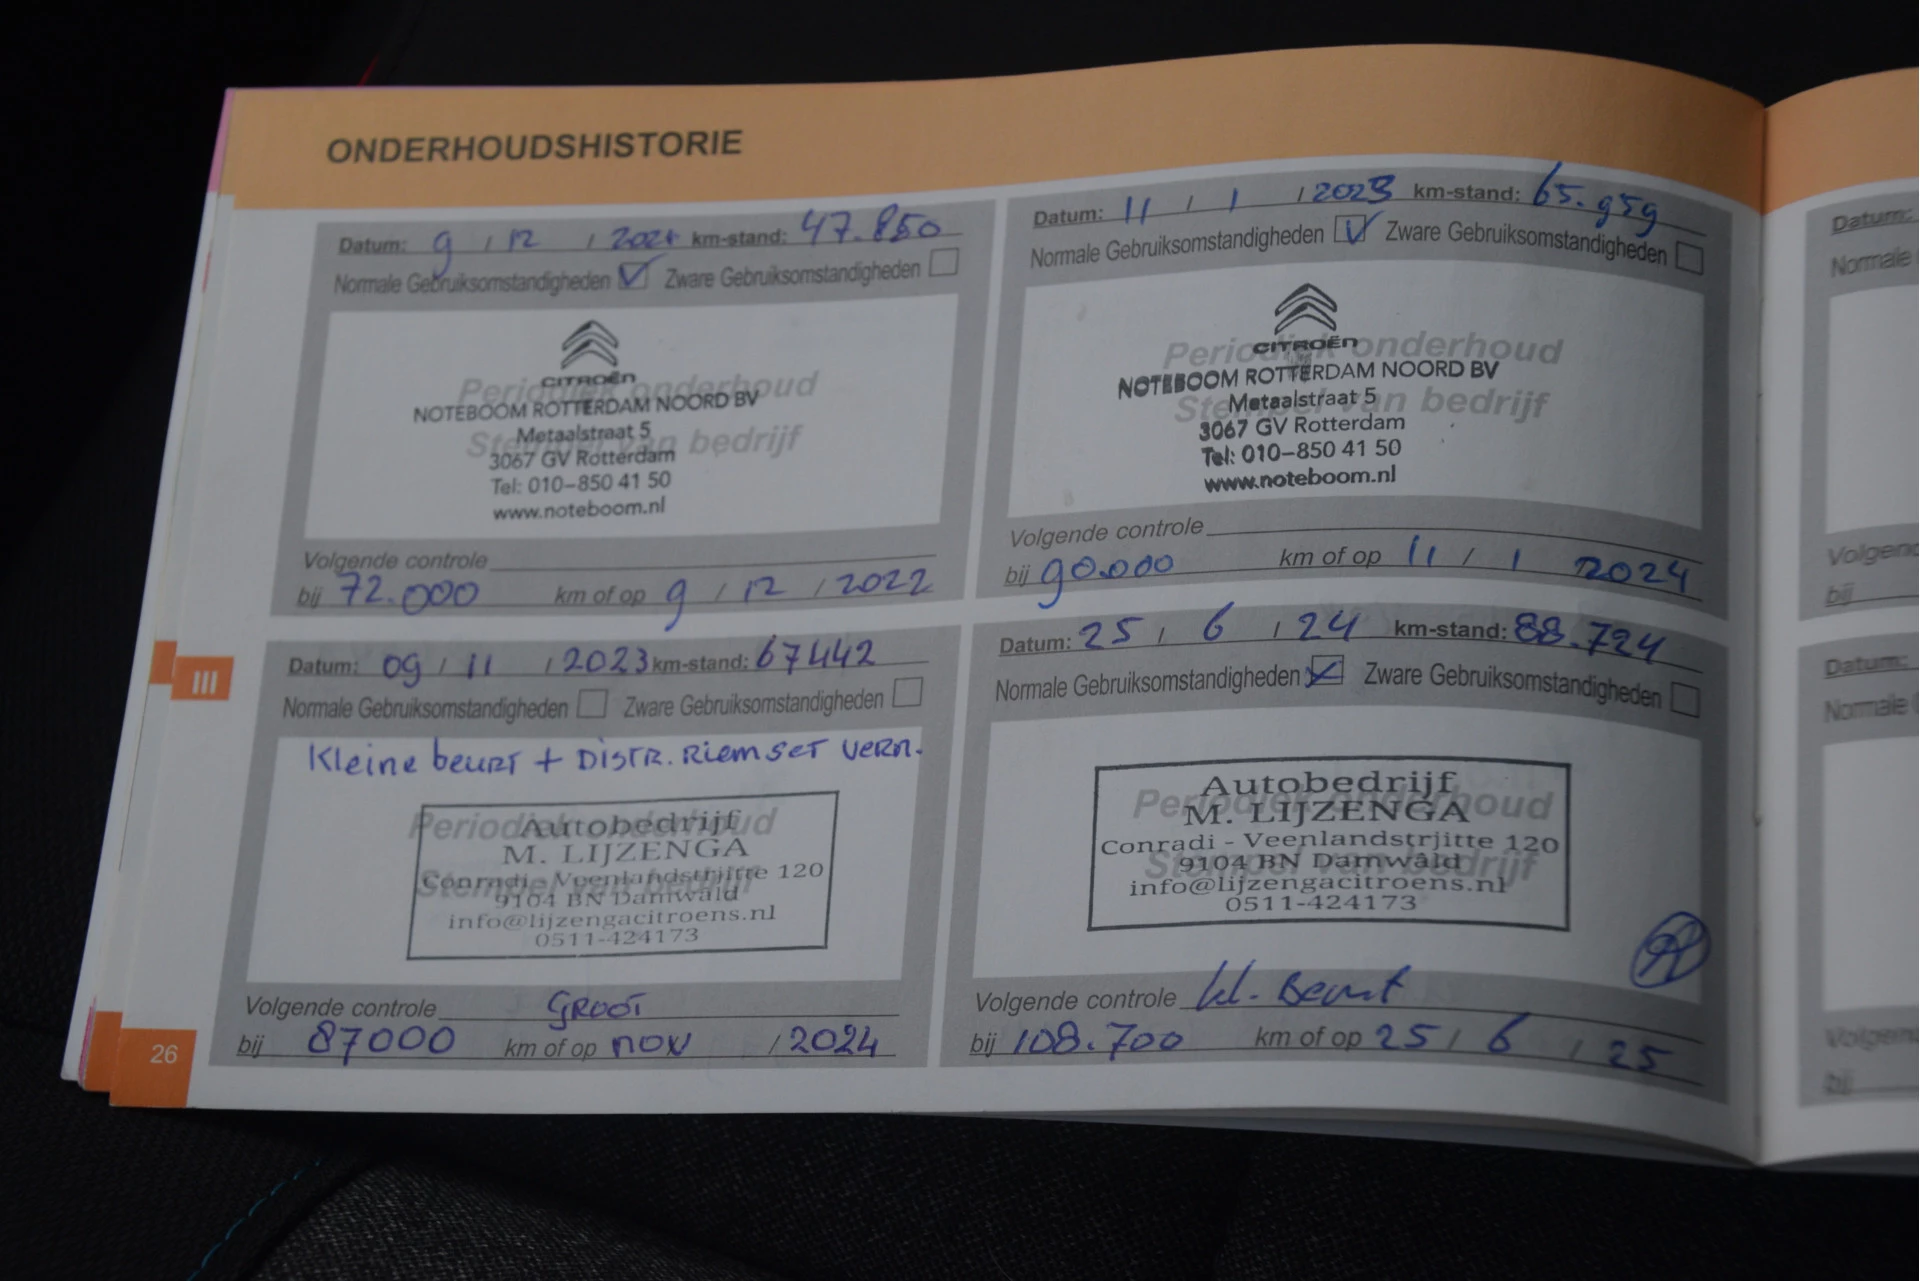 ONDERHOUDSHISTORIE
Datum: 9 / 12 / 2021 km-stand: 47.850
Normale Gebruiksomstandigheden Zware Gebruiksomstandigheden
Periodiek onderhoud
Stempel van bedrijf
CITROËN
NOTEBOOM ROTTERDAM NOORD BV
Metaalstraat 5
3067 GV Rotterdam
Tel: 010-850 41 50
www.noteboom.nl
Volgende controle
bij 72.000 km of op 9 / 12 / 2022
Datum: 11 / 1 / 2023 km-stand: 65.959
Normale Gebruiksomstandigheden Zware Gebruiksomstandigheden
Periodiek onderhoud
Stempel van bedrijf
CITROËN
NOTEBOOM ROTTERDAM NOORD BV
Metaalstraat 5
3067 GV Rotterdam
Tel: 010-850 41 50
www.noteboom.nl
Volgende controle
bij 90.000 km of op 11 / 1 2024
Datum: 09 / 11 / 2023 km-stand: 67442
Normale Gebruiksomstandigheden Zware Gebruiksomstandigheden
Kleine beurt + Distr. Riemset vern.
Periodiek onderhoud
Stempel van bedrijf
Autobedrijf
M. LIJZENGA
Conradi - Veenlandstrjitte 120
9104 BN Damwâld
info@lijzengacitroens.nl
0511-424173
Volgende controle GROOT
bij 87000 km of op nov / 2024
Datum: 25 / 6 / 24 km-stand: 88.724
Normale Gebruiksomstandigheden Zware Gebruiksomstandigheden
Periodiek onderhoud
Stempel van bedrijf
Autobedrijf
M. LIJZENGA
Conradi - Veenlandstrjitte 120
9104 BN Damwâld
info@lijzengacitroens.nl
0511-424173
Volgende controle kl. Beurt
bij 108.700 km of op 25 / 6 / 25
III
26
Datum:
Normale
Volgend
bij
Datum:
Normale
Volgen
bij